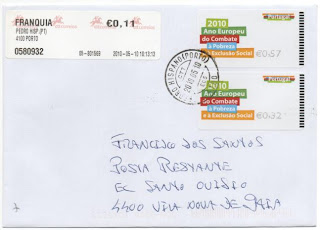 FRANQUIA
PEDRO HISP.(PT)
4100 PORTO
€0,11
0580932
2010-05-10
Portugal
2010
Ano Europeu
do Combate
à Pobreza
e à Exclusão Social
€0,57
Portugal
2010
Ano Europeu
do Combate
à Pobreza
e à Exclusão Social
€0,32
HISPANO (PORTO)
FRANCISCO DOS SANTOS
POSTA RESTANTE
EC SANTO OVIDIO
4400 VILA NOVA DE GAIA